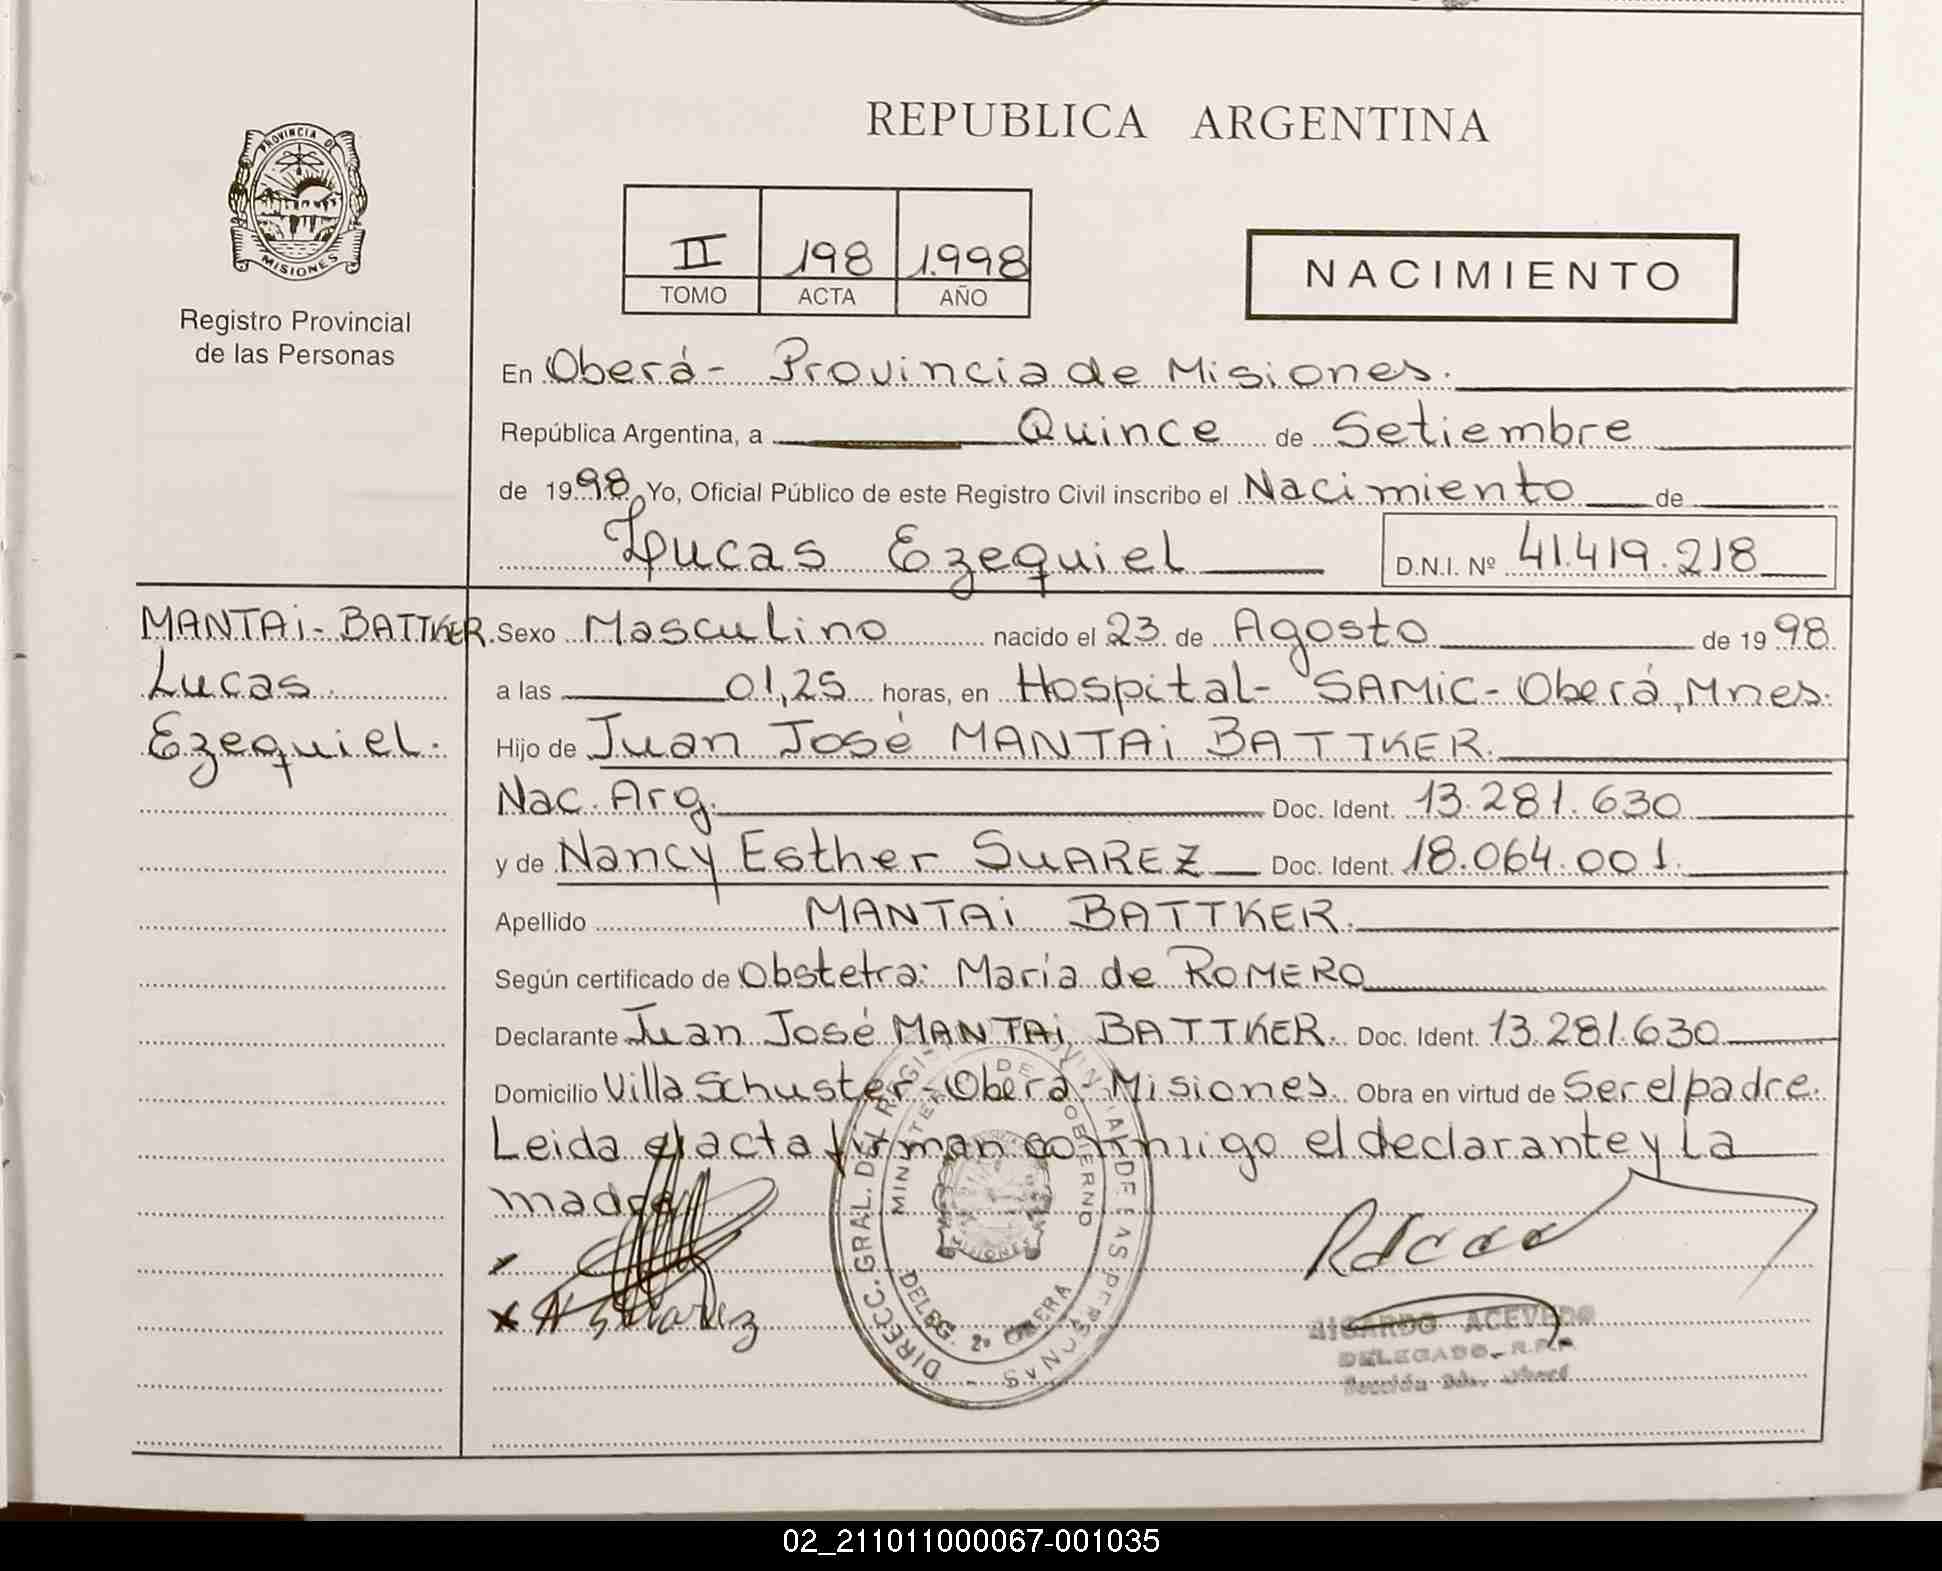 REPUBLICA ARGENTINA
PROVINCIA DE
MISIONES
Registro Provincial
de las Personas
II 198 1.998
TOMO ACTA AÑO
NACIMIENTO
En Oberá- Provincia de Misiones.
República Argentina, a Quince de Setiembre
de 1998 Yo, Oficial Público de este Registro Civil inscribo el Nacimiento de
Lucas Ezequiel D.N.I. Nº 41.419.218
MANTAi-BATTKER.
Lucas
Ezequiel.
Sexo Masculino nacido el 23 de Agosto de 1998.
a las 01,25 horas, en Hospital- SAMIC- Oberá, Mnes.
Hijo de Juan José MANTAi BATTKER.
Nac. Arg. Doc. Ident. 13.281.630
y de Nancy Esther SUAREZ Doc. Ident. 18.064.001.
Apellido MANTAi BATTKER.
Según certificado de Obstetra: Maria de ROMERO
Declarante Juan José MANTAi BATTKER. Doc. Ident. 13.281.630
Domicilio Villa Schuster- Oberá- Misiones. Obra en virtud de Ser el padre.
Leida el acta firman conmigo el declarante y la
madre
N Suarez
DIRECC. GRAL. DEL REGISTRO PROVINCIAL DE LAS PERSONAS -
MINISTERIO DE GOBIERNO
MISIONES
DELEG. 2º OBERA
RICARDO ACEVEDO
DELEGADO R.P.P.
Sección 2da. Oberá
02_211011000067-001035